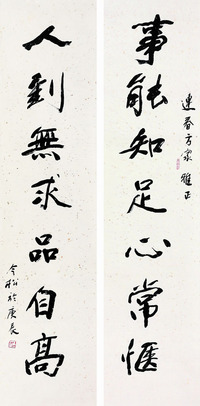 連春方家雅正
事能知足心常惬
人到無求品自高
令松於庚辰